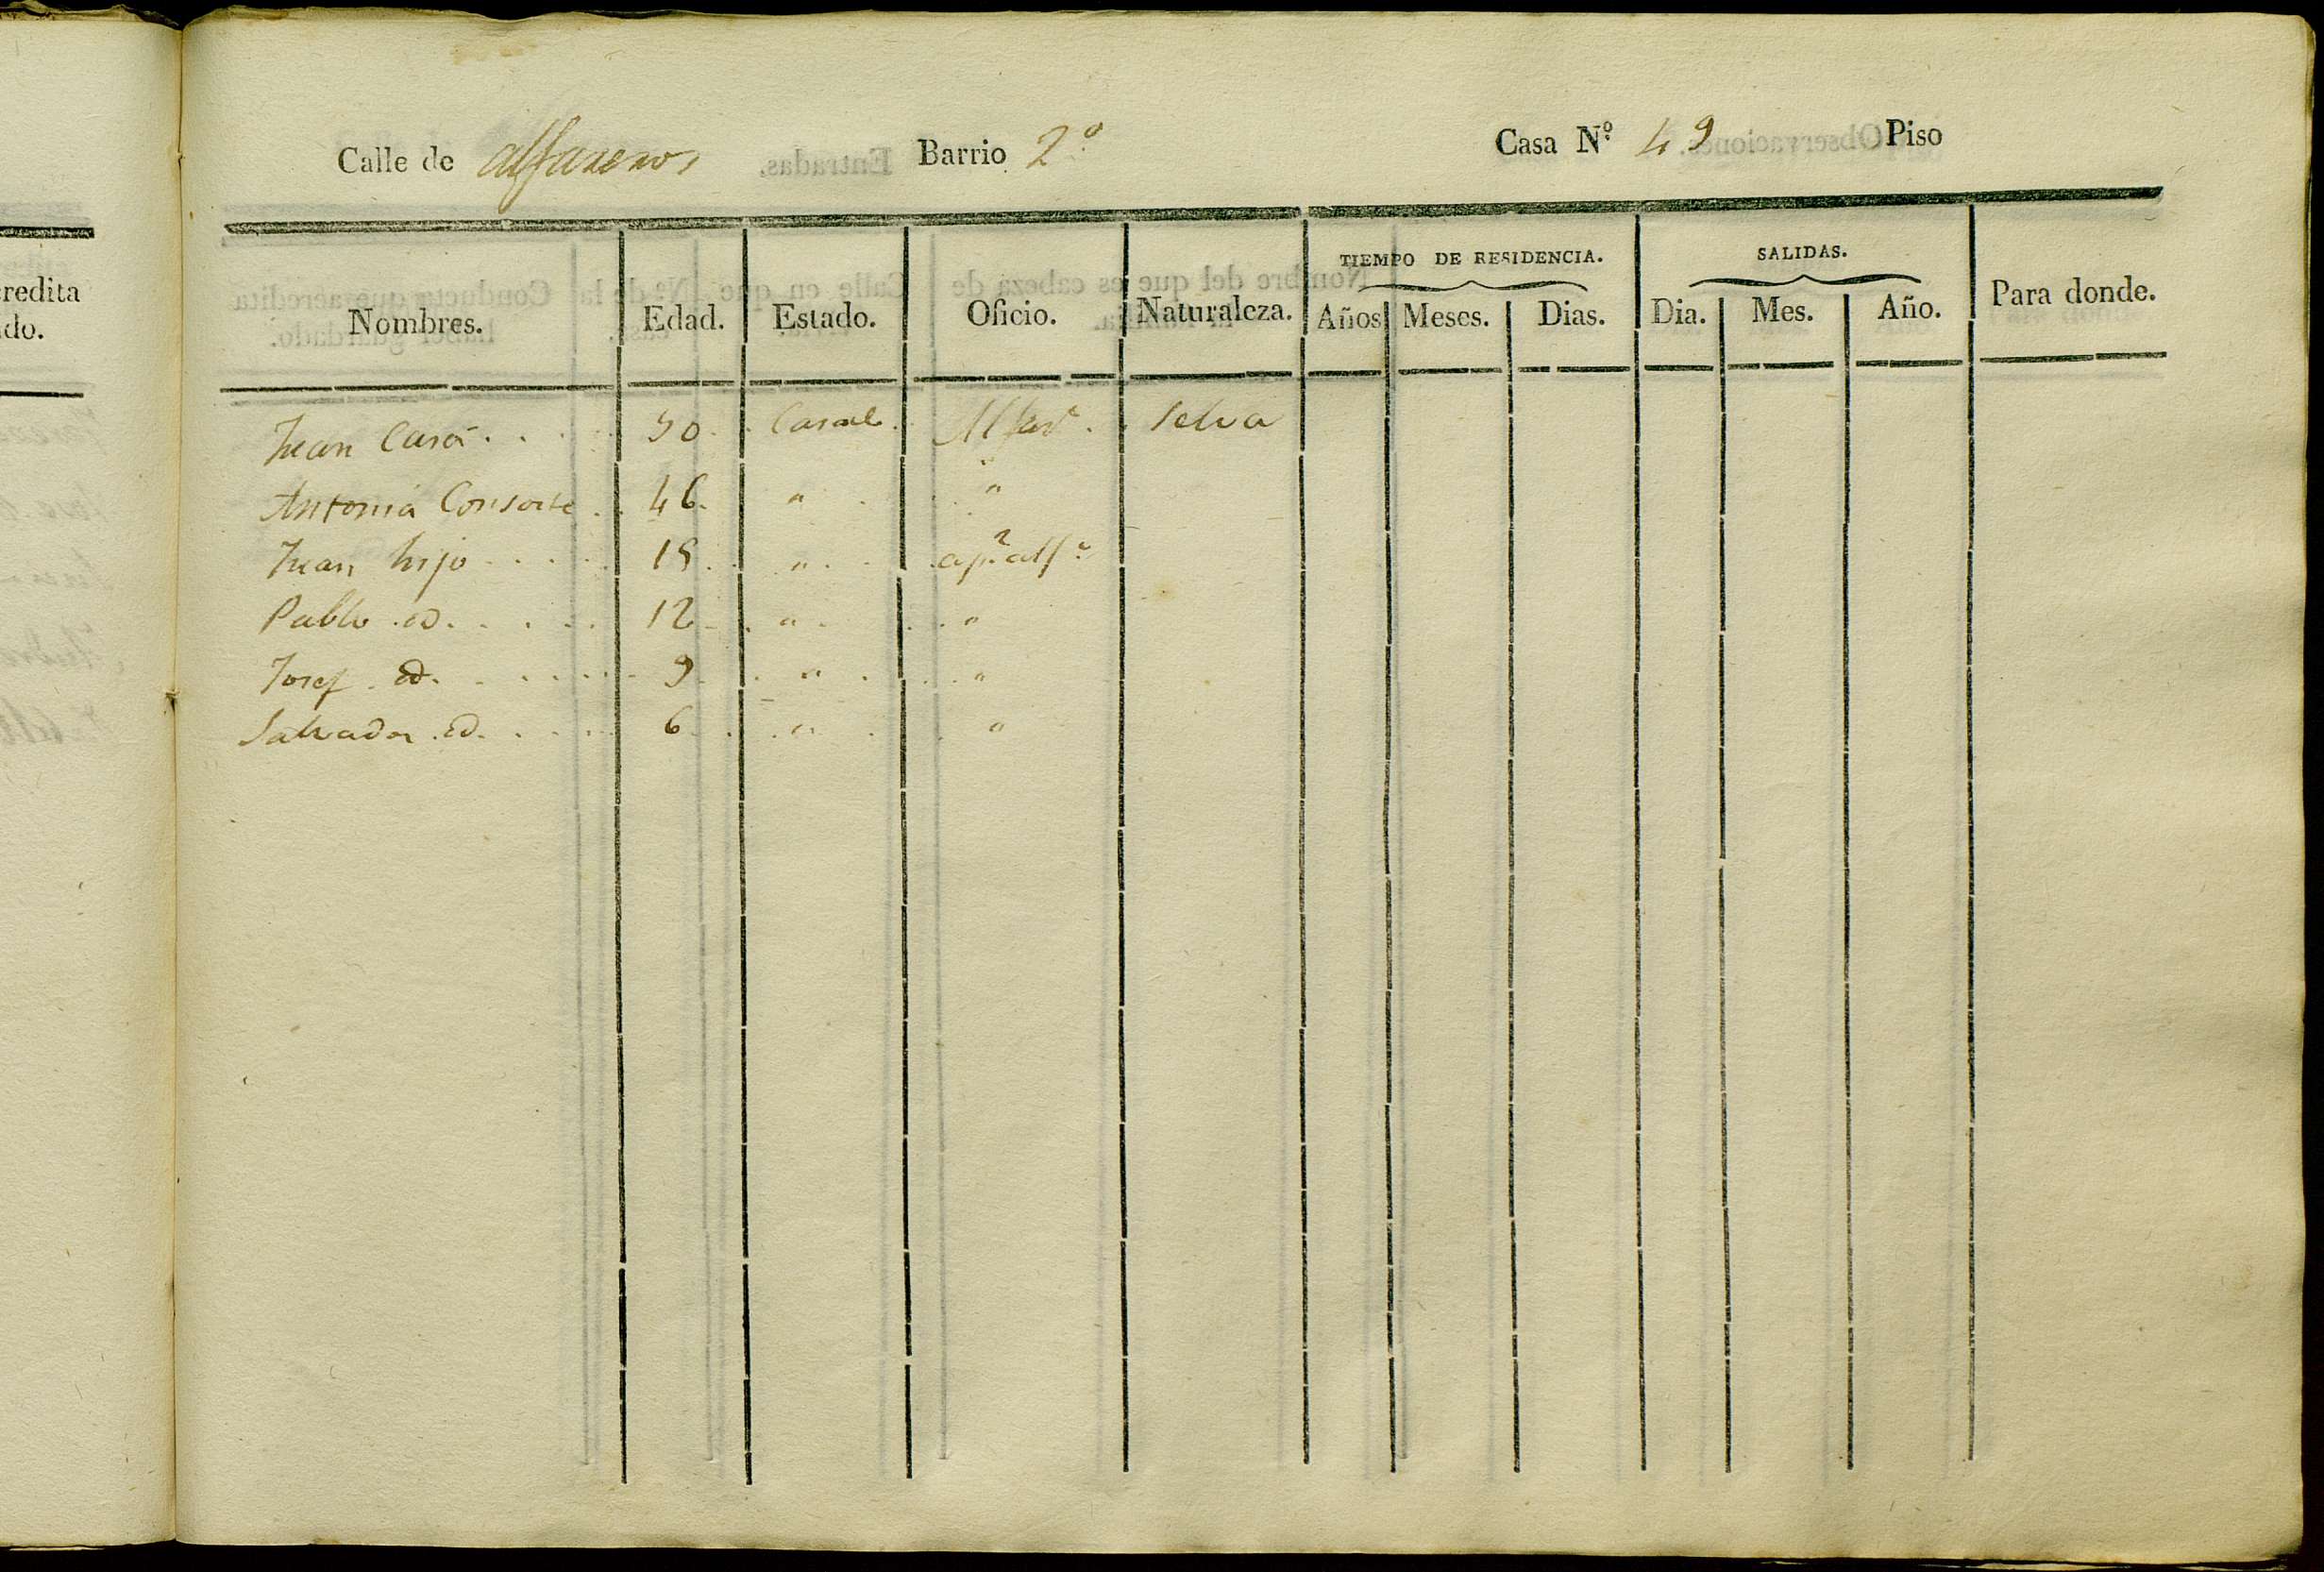 redita
do.
Calle de alfareros Barrio 2º Casa Nº 49 Piso
TIEMPO DE RESIDENCIA. SALIDAS.
Nombres. Edad. Estado. Oficio. Naturaleza. Años Meses. Dias. Dia. Mes. Año. Para donde.
Juan . . . 50 . . Alfarº . . Selva
Antonia Consorte . . 46. " . . . "
Juan hijo . . . . . 15 . . " . . . apº alfº
Pablo . id . . . . . 12 . . " . . . "
Josef . id . . . . . . 9 . . " . . . "
Salvador . id . . . . . 6 . . . " . . "